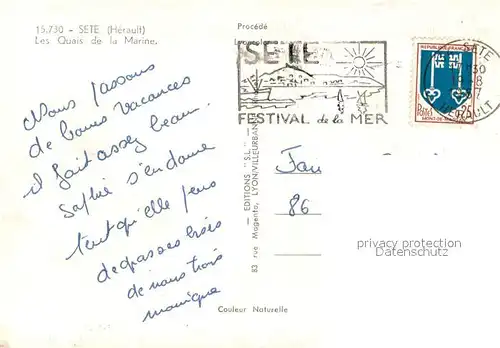 15.730 - SETE (Hérault)
Les Quais de la Marine.
Procédé
SETE
FESTIVAL de la MER
SETE
HERAULT
REPUBLIQUE FRANCAISE
MONT-DE-MARSAN
Nous passons
de bonnes vacances
il fait assez beau.
Sophie s'en donne
tant qu'elle peux
de grosses bises
de nous trois
monique
— EDITIONS "S.L." —
83 rue Magenta, LYON/VILLEURBANNE
86
privacy protection
Datenschutz
Couleur Naturelle